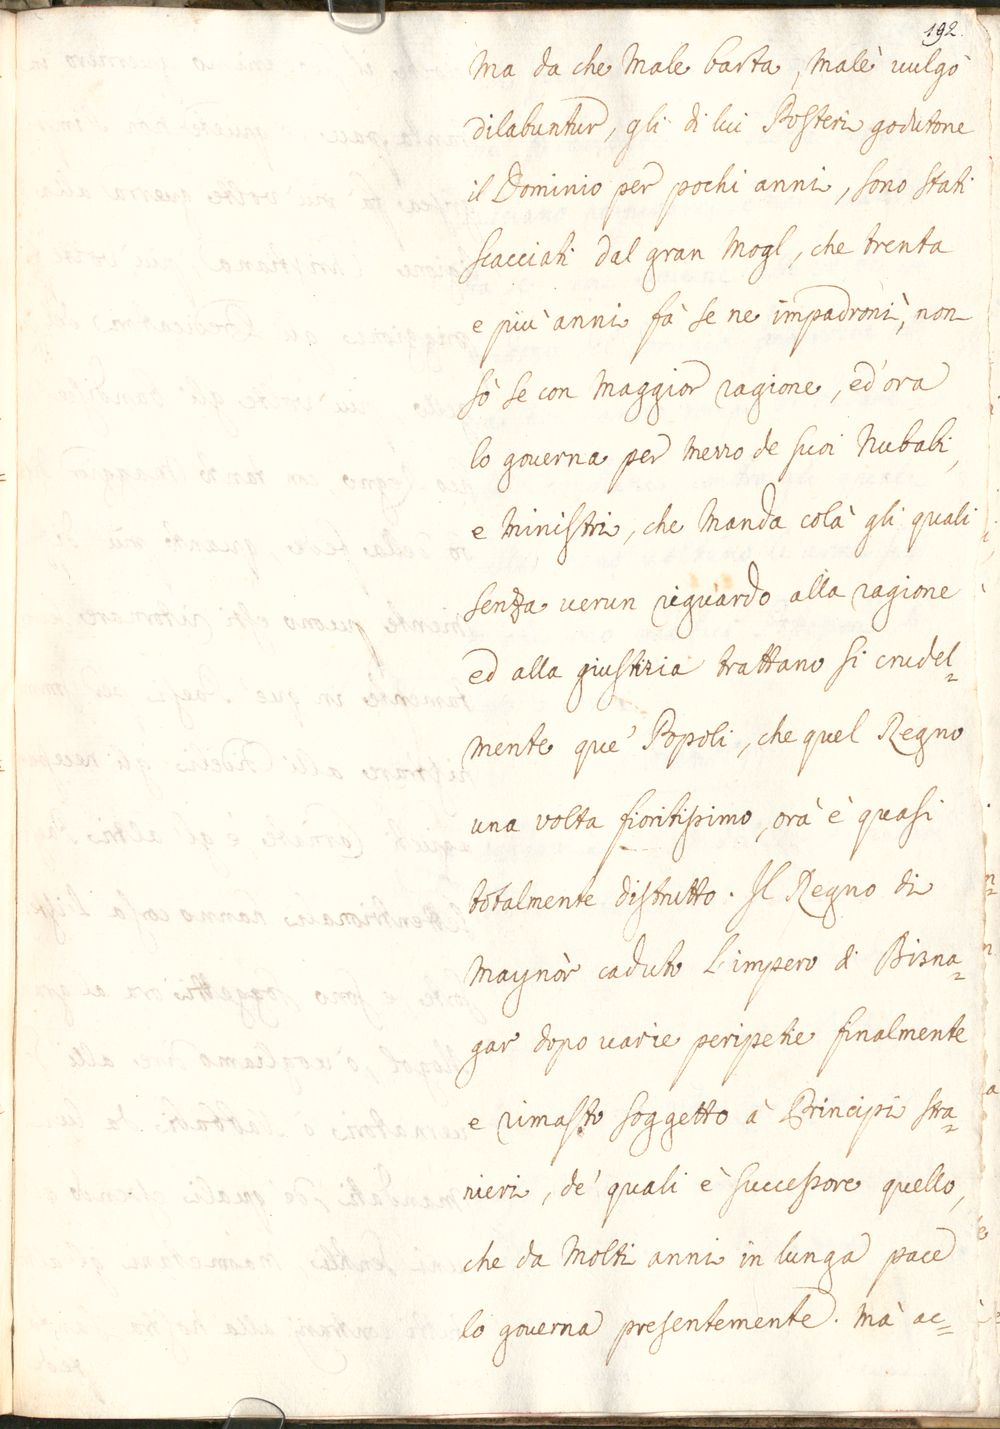 192.
Ma da che Male parta, malè uulgò
dilabuntur, gli di lui Posteri godutone
il Dominio per pochi anni, sono stati
scacciati dal gran Mogl, che trenta
e più anni fà se ne impadronì, non
sò se con maggior ragione, ed'ora
lo governa per mezzo de suoi Nubabi,
e Ministri, che manda colà gli quali
senza uerun riguardo alla ragione
ed alla giustizia trattano si crudel=
mente que' Popoli, che quel Regno
una volta fioritissimo, orà è quasi
totalmente distrutto. Il Regno di
Maynòr caduto l'impero di Bisna=
gar dopo uarie peripetie finalmente
e rimasto soggetto à Principi stra=
nieri, de' quali è successore quello,
che da molti anni in lunga pace
lo governa presentemente. Mà ac=